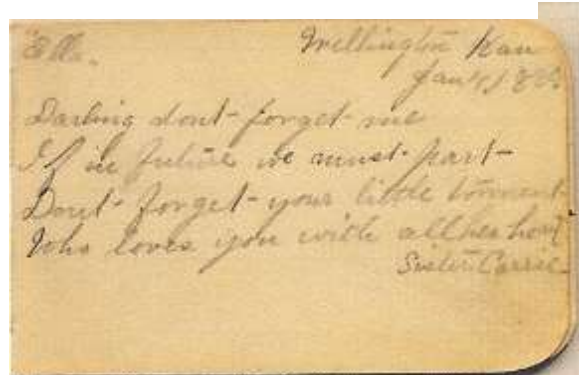 Ella.
Wellington Kan
Darling dont forget me
If in future we must part
Dont forget your little torment
Who loves you with all her heart
Sister Carrie